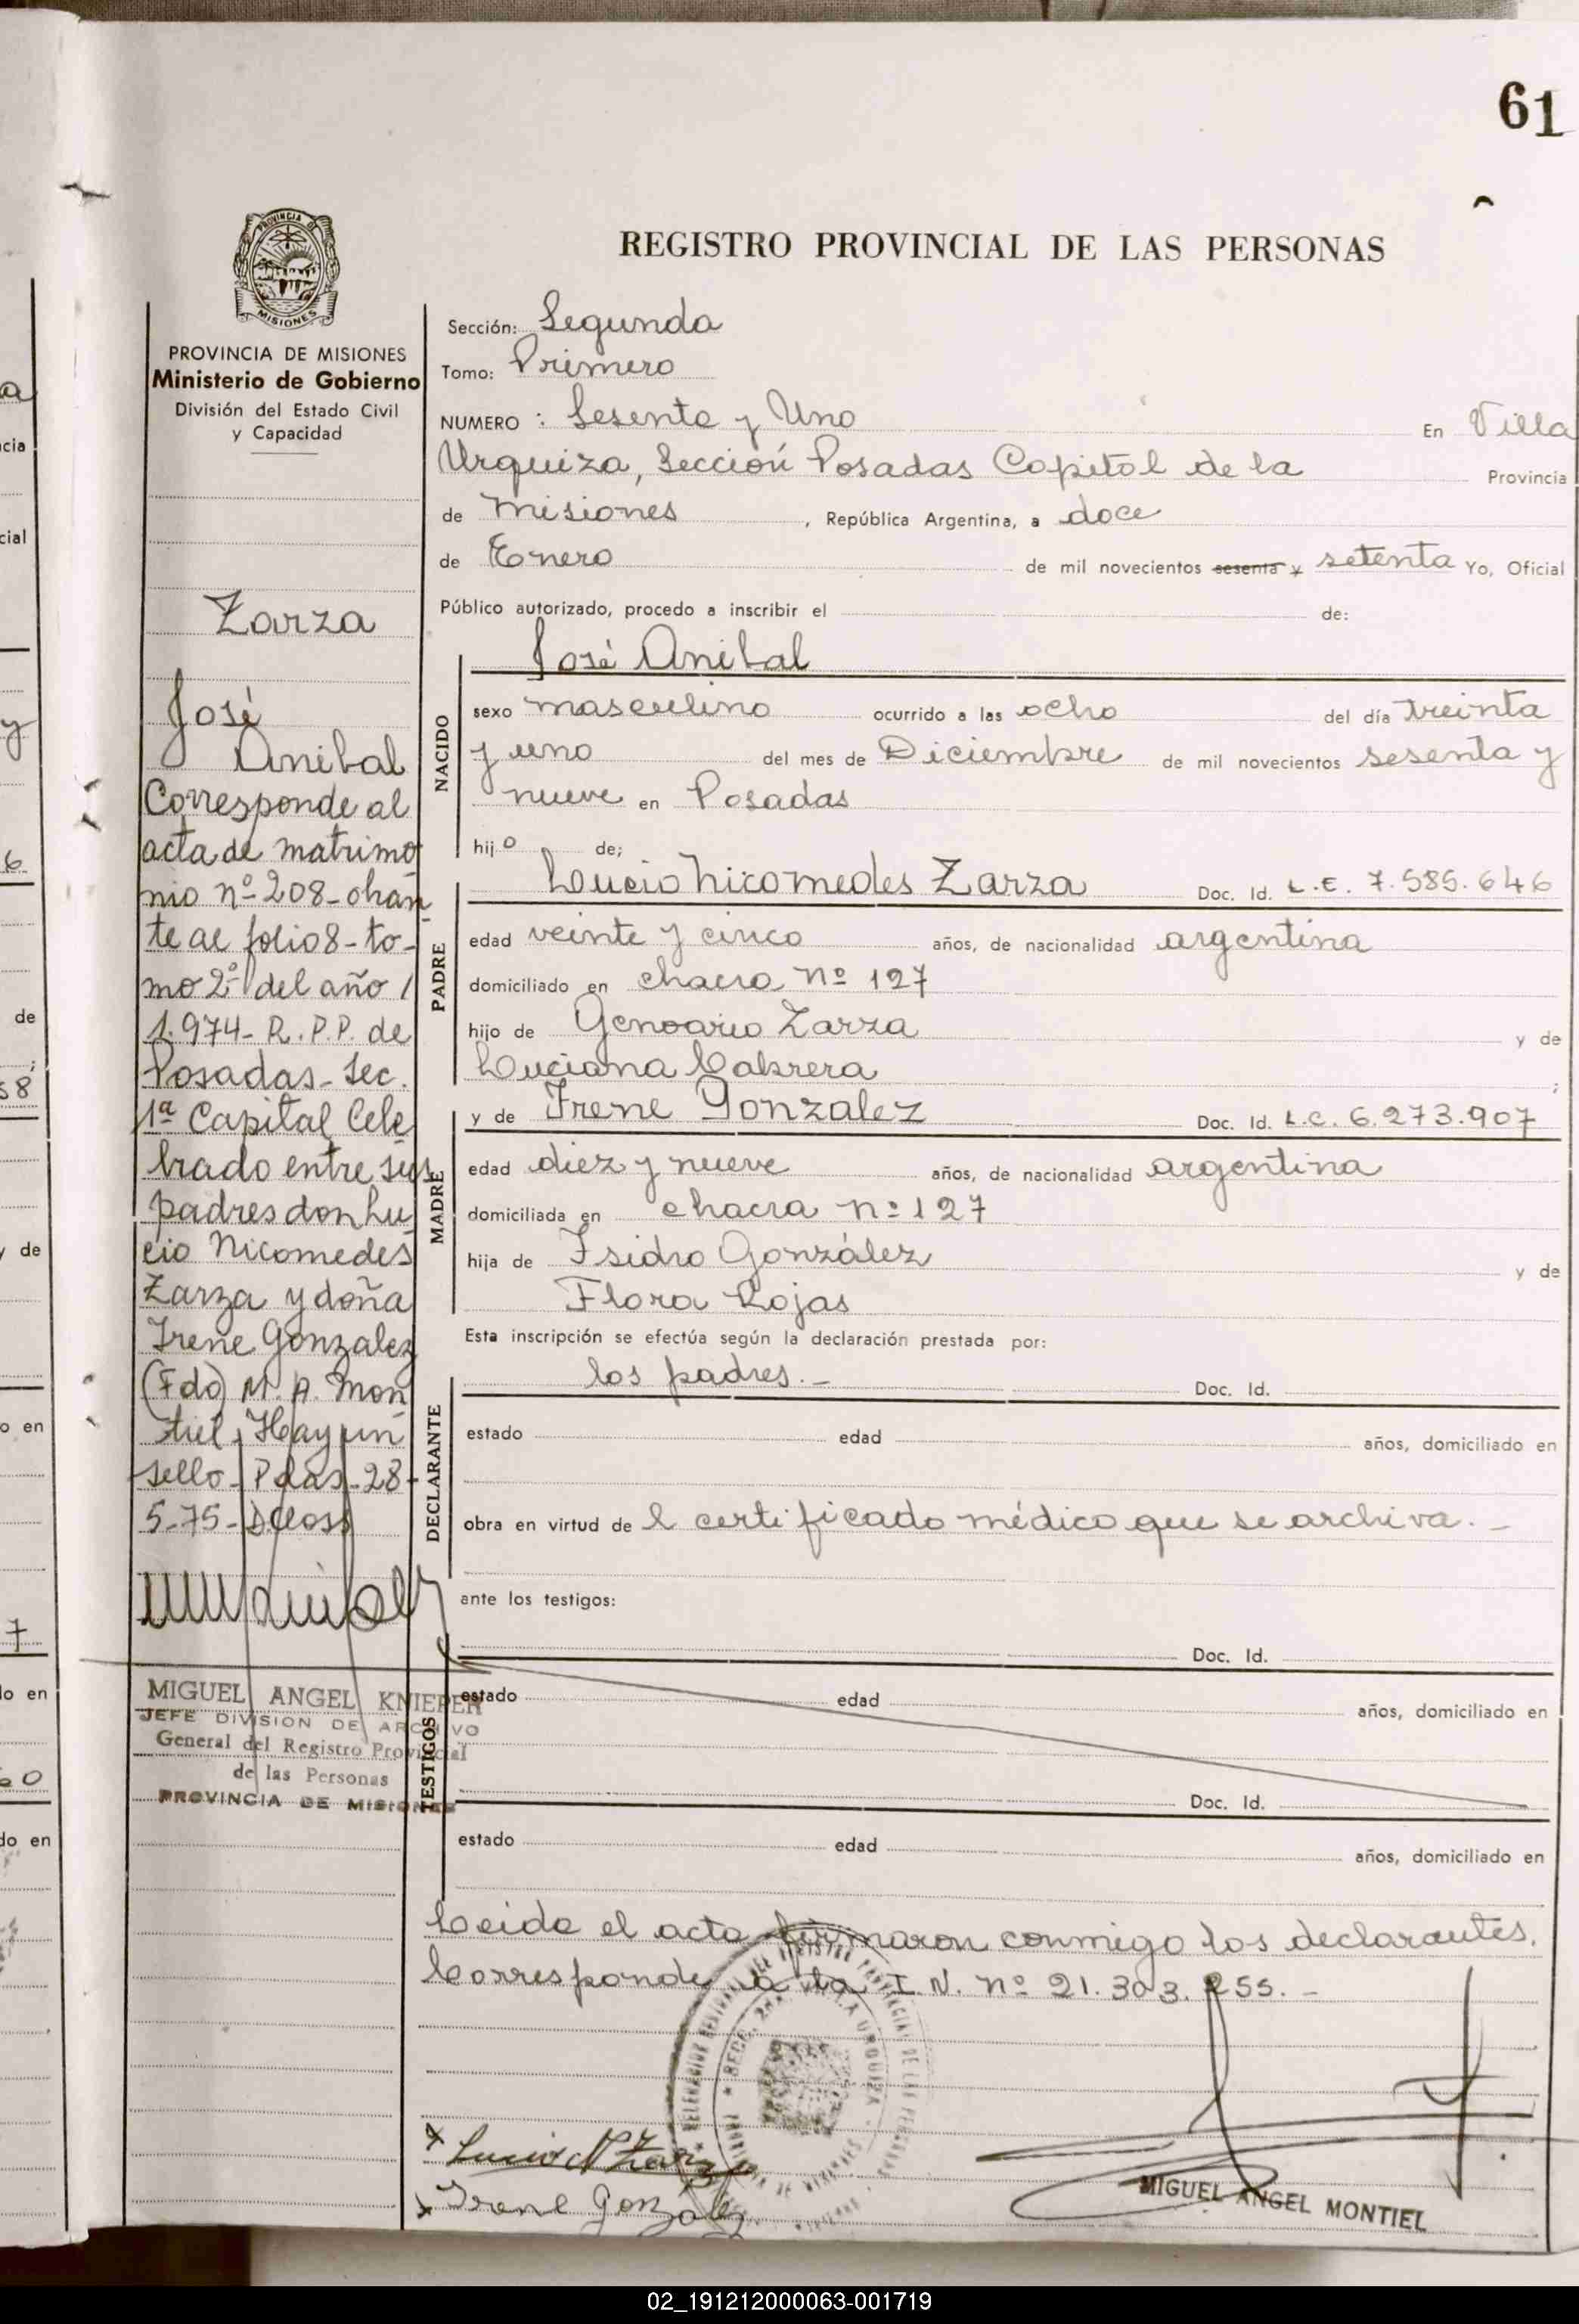 61
REGISTRO PROVINCIAL DE LAS PERSONAS
PROVINCIA DE MISIONES
Ministerio de Gobierno
División del Estado Civil
y Capacidad
Zarza
José
Anibal
Corresponde al
acta de matrimo
nio nº 208- obran
te al folio 8- to-
mo 2º del año /
1.974- R.P.P. de
Posadas- Sec.
1ª Capital Cele
brado entre sus
padres don Lu
cio Nicomedes
Zarza y doña
Irene Gonzalez
(Fdo) M. A. Mon
tiel, Hay un
sello- Pdas- 28-
5-75-
MIGUEL ANGEL KNIEPER
JEFE DIVISION DE ARCHIVO
General del Registro Provincial
de las Personas
PROVINCIA DE MISIONES
Sección: Segunda
Tomo: Primero
NUMERO : Sesenta y Uno En Villa
Urquiza, Sección Posadas Capital de la Provincia
de Misiones , República Argentina, a doce
de Enero de mil novecientos sesenta y setenta Yo, Oficial
Público autorizado, procedo a inscribir el de:
José Anibal
NACIDO
sexo masculino ocurrido a las ocho del día treinta
y uno del mes de Diciembre de mil novecientos sesenta y
nueve en Posadas
hijo de;
Lucio Nicomedes Zarza Doc. Id. L.E. 7.585.646
PADRE
edad veinte y cinco años, de nacionalidad argentina
domiciliado en chacra nº 127
hijo de Genoario Zarza y de
Luciana Cabrera ;
y de Irene Gonzalez Doc. Id. L.C. 6.273.907
MADRE
edad diez y nueve años, de nacionalidad argentina
domiciliada en chacra nº 127
hija de Isidro González y de
Flora Rojas
Esta inscripción se efectúa según la declaración prestada por:
los padres.- Doc. Id.
DECLARANTE
estado edad años, domiciliado en
obra en virtud de l certificado médico que se archiva.-
ante los testigos:
Doc. Id.
TESTIGOS
estado edad años, domiciliado en
Doc. Id.
estado edad años, domiciliado en
Leida el acta firmaron conmigo los declarantes.
Corresponde a la I.N. nº 21.303.255.-
Lucio N Zarza
Irene González
MIGUEL ANGEL MONTIEL
02_191212000063-001719